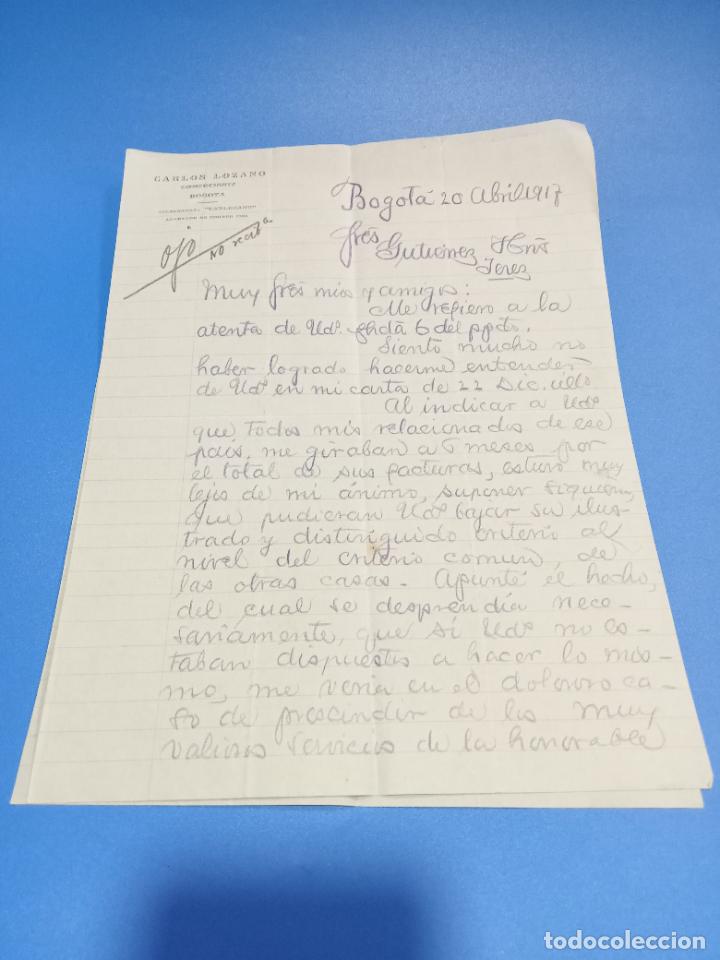 CARLOS LOZANO
COMERCIANTE
BOGOTA
Ojo
No
Bogotá 20 Abril 1917
Sres Gutierrez Hnos
Jerez
Muy Sres mios y amigos:
Me refiero a la
atenta de Uds. fhda 6 del ppdo.
Siento mucho no
haber logrado hacerme entender
de Uds en mi carta de 22 Dic. último
Al indicar a Uds
que todos mis relacionados de ese
pais, me giraban a 6 meses por
el total de sus facturas, estuvo muy
lejos de mi ánimo, suponer siquiera,
que pudieran Uds bajar su ilus-
trado y distinguido criterio al
nivel del criterio comun, de
las otras casas. Apunté el hecho,
del cual se desprendía nece-
sariamente, que si Uds no es-
taban dispuestos a hacer lo mis-
mo, me veria en el doloroso ca-
so de prescindir de los muy
valiosos servicios de la honorable
todocoleccion
todocoleccion.net